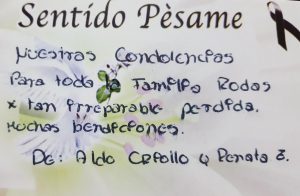 Sentido Pèsame
Nuestras Condolencias
Para toda Familia Rodas
x tan irreparable perdida.
Muchas bendiciones.
De: Aldo Criollo y Renata